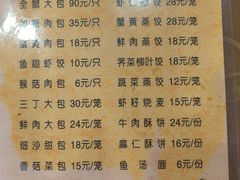 全蟹大包 90元/只
蟹黄蒸饺 28元/笼
鲜肉 18元/只
蟹黄肉包 10元/只
鲜肉蒸饺 15元/笼
鱼翅虾饺 18元/笼
荠菜柳叶饺 15元/笼
猴菇肉包 6元/只
蔬菜蒸饺 12元/笼
三丁大包 30元/笼
虾籽烧麦 15元/笼
鲜肉大包 24元/笼
牛肉酥饼 16元/份
细沙甜包 18元/笼
麻仁酥饼 16元/份
香菇菜包 15元/笼
鱼汤面 6元/份